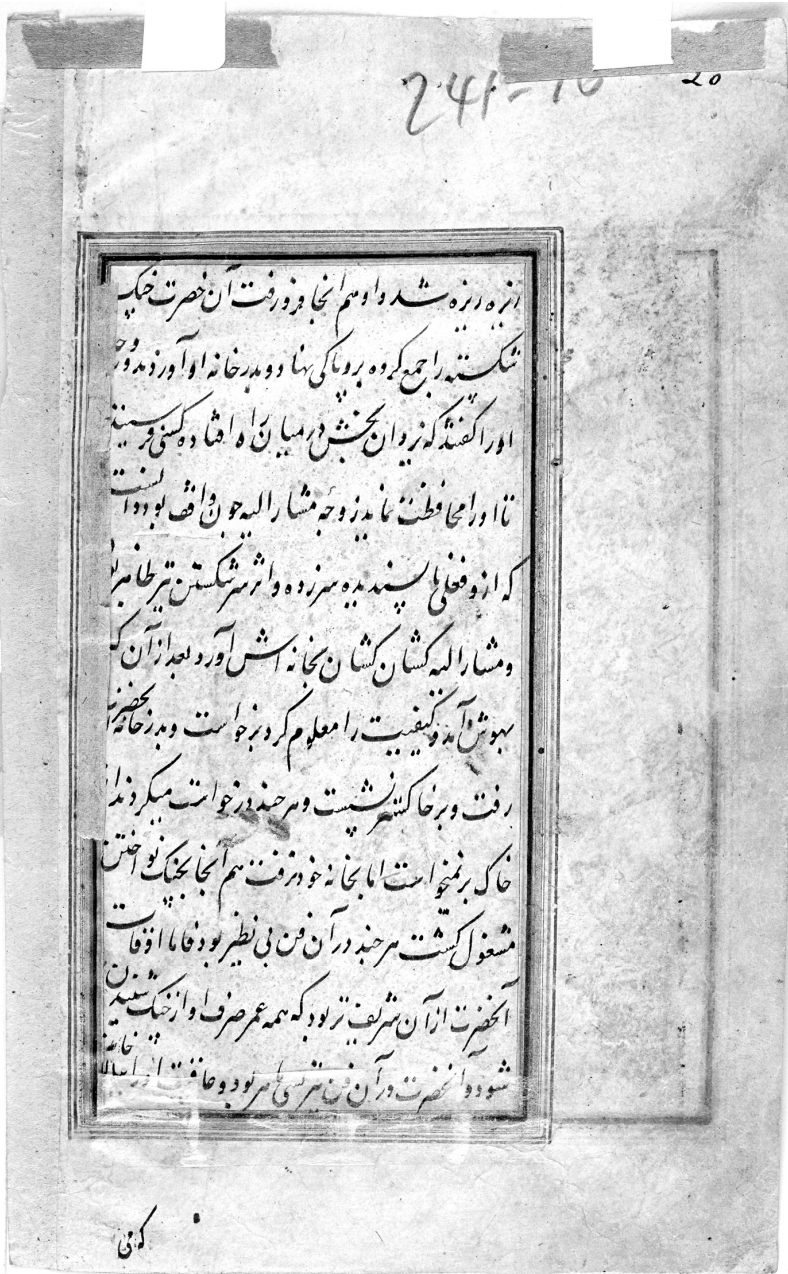 241-10
20
ریزه ریزه شد و او هم آنجا فرو رفت آن حضرت چنک
شکسته را جمع کرده بر و پاکی نهاد و بدر خانه او آورد بدور
او را کفتند که زو ان بخش در میان راه افتاده کسی فرستید
تا او را محافظت نماید زوجه مشار الیه چون واقف بود دانست
که ازو فعلی ناپسندیده سر زده و اثر سر شکستن نیز ظاهر
و مشار الیه کشان کشان بخانه اش آورد بعد از آن که
بهوش آمد و کیفیت را معلوم کرد برخواست و بدر خانه آنحضرت
رفت و بر خاکستر نشست و هر چند درخواست میکردند از
خاک برنمیخواست اما بخانه خود نرفت هم آنجا بچنک نواختن
مشغول کشت هر چند در آن فن بی نظیر بود فاما اوقات
آنحضرت از آن شریف تر بود که همه عمر صرف آواز چنک شنیدن
شود و آنحضرت در آن فن نیز بسی ماهر بود و عاقبت او را
که می